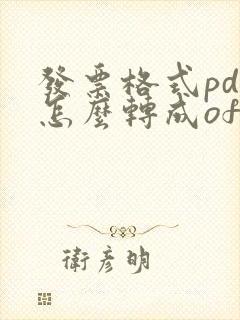 發票格式pd
怎麼轉成of
衛彥明